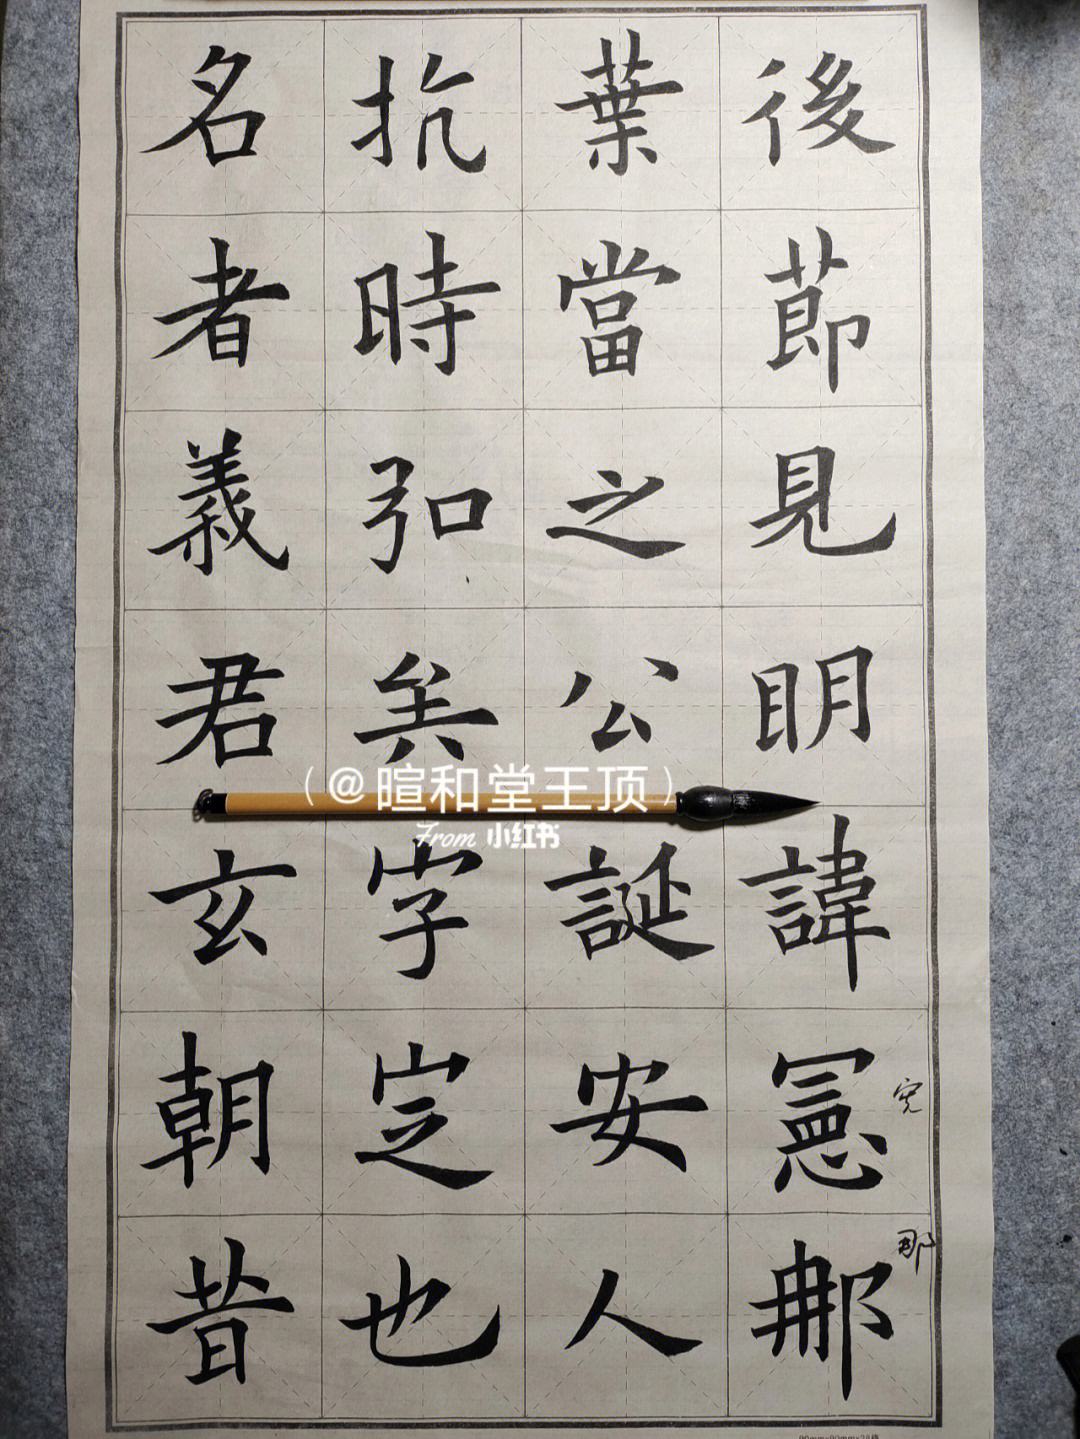 後莭見眀諱憲那
宪
那
葉當之公誕安人
抗時弘矣字定也
名者義君玄朝昔
(@暄和堂王顶)
From 小红书